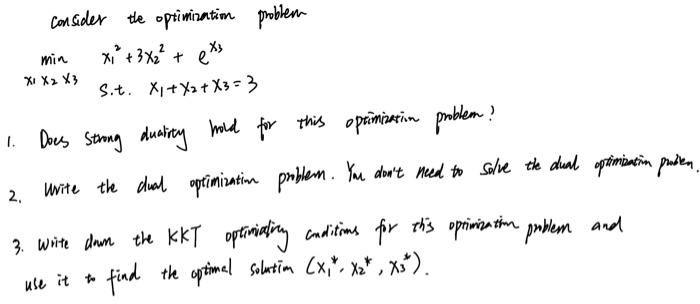 Consider the optimization problem
min x₁² + 3x₂² + e^x₃
x₁ x₂ x₃ s.t. x₁+x₂+x₃=3
1. Does strong duality hold for this optimization problem?
2. Write the dual optimization problem. You don't need to solve the dual optimization problem.
3. Write down the KKT optimality conditions for this optimization problem and
use it to find the optimal solution (x₁*, x₂*, x₃*).